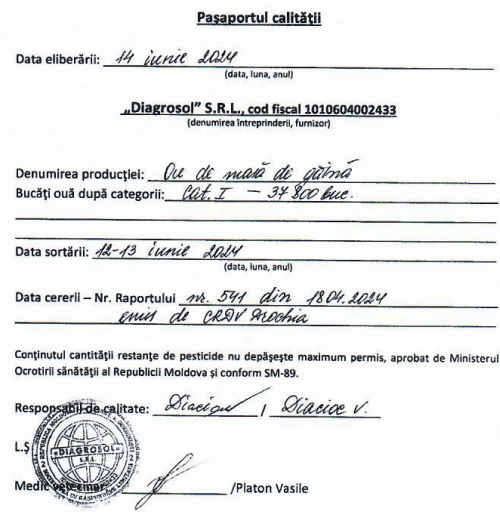 Paşaportul calităţii
Data eliberării: 14 iunie 2024
(data, luna, anul)
„Diagrosol” S.R.L., cod fiscal 1010604002433
(denumirea întreprinderii, furnizor)
Denumirea producţiei: Ou de masă de găină
Bucăţi ouă după categorii: Cat. I – 37 800 buc.
Data sortării: 12-13 iunie 2024
(data, luna, anul)
Data cererii – Nr. Raportului nr. 541 din 18.04.2024
emis de CRDV
Conţinutul cantităţii restanţe de pesticide nu depăşeşte maximum permis, aprobat de Ministerul
Ocrotirii sănătăţii al Republicii Moldova şi conform SM-89.
Responsabil de calitate: / V.
L.Ş
«DIAGROSOL»
S.R.L.
Medic veterinar /Platon Vasile